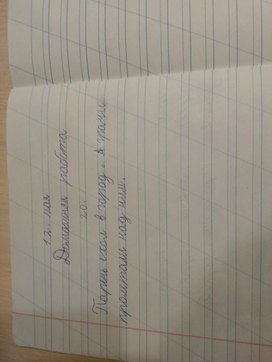 12 мая
Домашняя работа
20.
Парень ехал в город. А грачи
пролетали над ним.